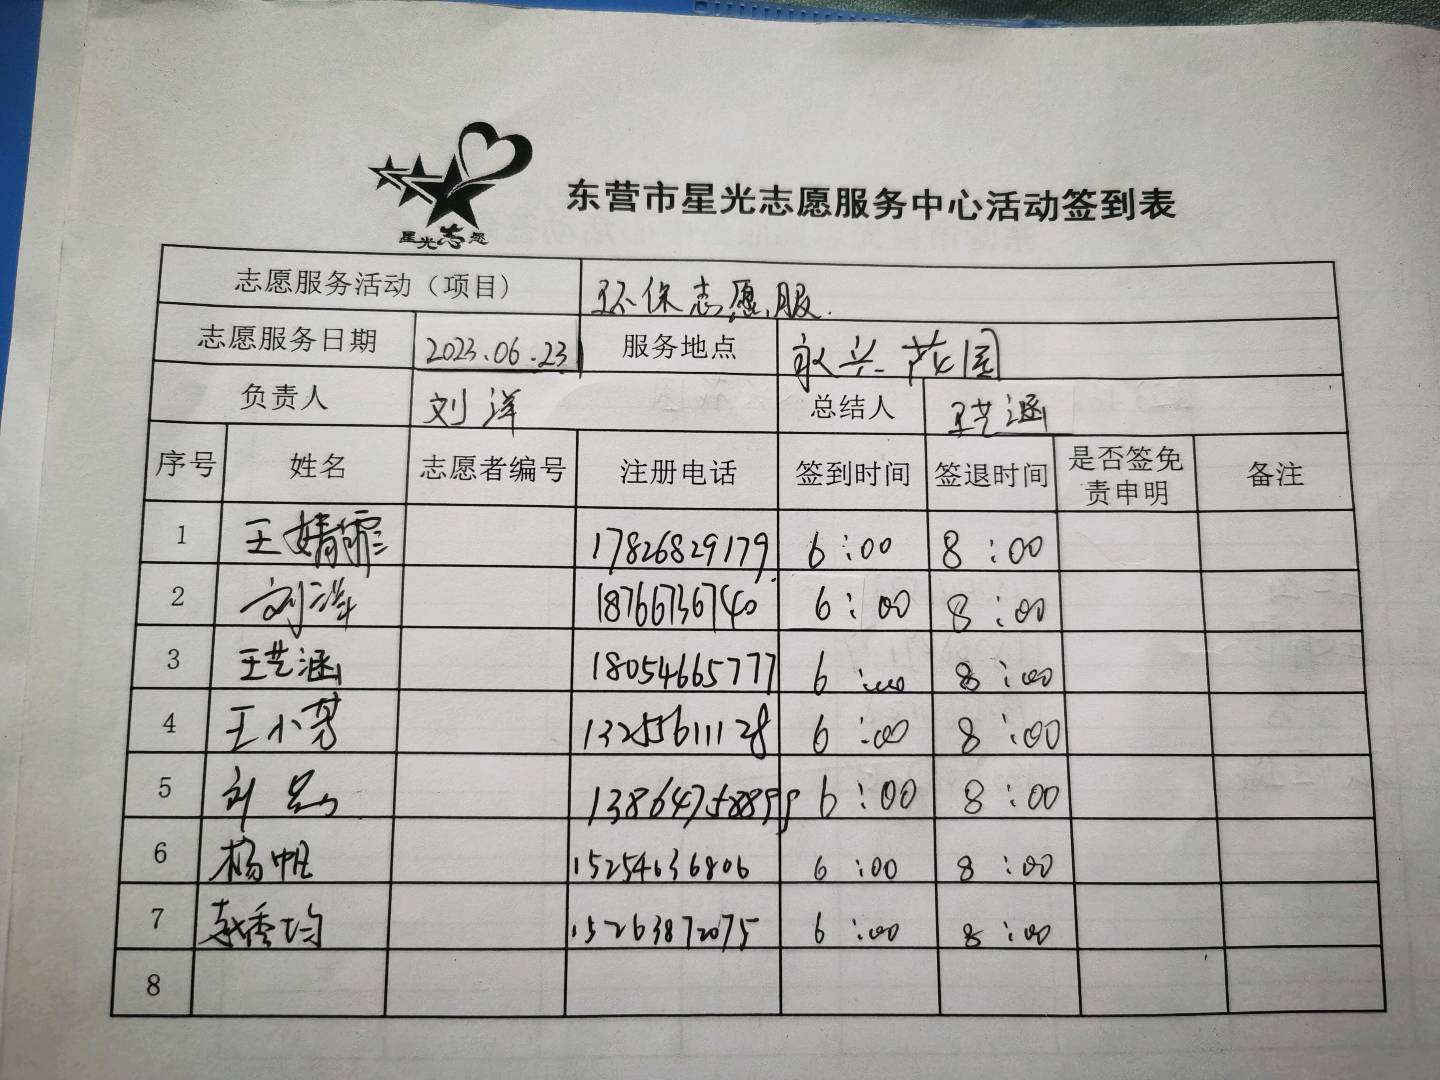 星光志愿
东营市星光志愿服务中心活动签到表
志愿服务活动（项目） 环保志愿服
志愿服务日期 2023.06.23 服务地点 永兴花园
负责人 刘洋 总结人 王艺涵
序号 姓名 志愿者编号 注册电话 签到时间 签退时间 是否签免责申明 备注
1 王婧霏 17826829179 6:00 8:00
2 刘洋 18766736740 6:00 8:00
3 王艺涵 18054665777 6:00 8:00
4 王小芳 13255611128 6:00 8:00
5 刘 13864758899 6:00 8:00
6 杨帆 15254636806 6:00 8:00
7 赵秀均 15263872075 6:00 8:00
8